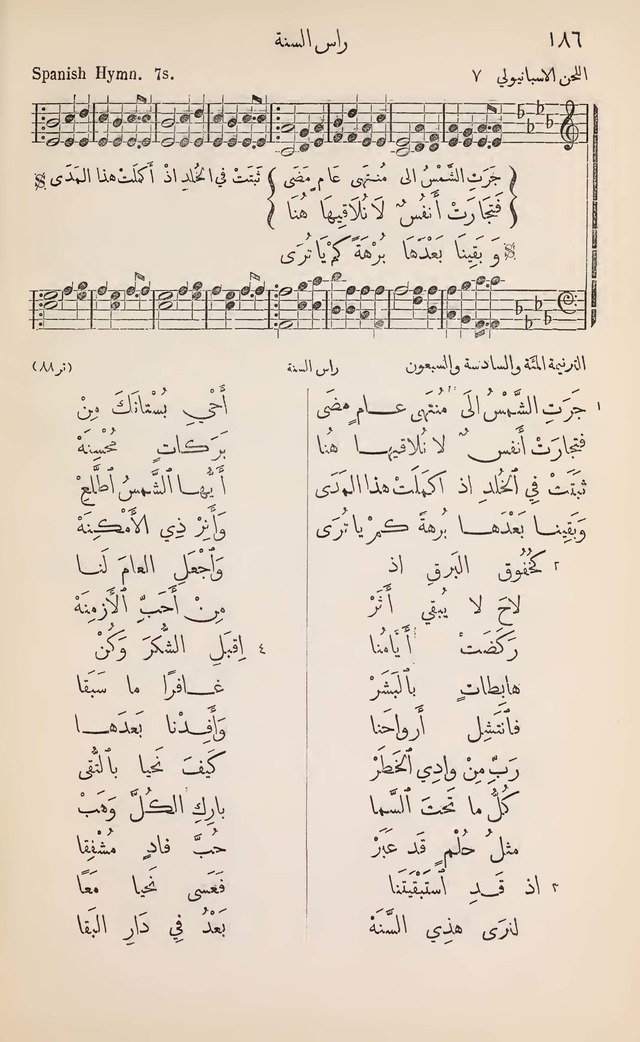 ١٨٦
راس السنة
اللحن الاسبانيولي ٧
Spanish Hymn. 7s.
جَرَتِ الشَّمْسُ الى مُنتهَى عَامٍ مَضَى
فَتجَارَتْ أَنفُسٌ لاَ نُلاَقِيهَا هُنَا
ثَبَتَتْ في الخُلدِ اذْ أَكمَلَتْ هذا المَدَى
وَبَقِينَا بَعْدَهَا بُرْهَةً كمْ يَا تُرَى
الترنيمة المئة والسادسة والسبعون
راس السنة
(تر ٨٨)
١ جَرَتِ الشَّمْسُ الَى مُنتَهَى عام مضَى
فتجارَتْ أَنفسٌ لا نُلاقيها هُنا
ثبَتَتْ في الخُلدِ اذ اكمَلَتْ هذا المدَى
وَبَقِينا بَعْدَها بُرهةً كمْ يا تُرَى
٢ كخُفُوق البَرقِ اذ
لاحَ لا يُبقي أَثَرْ
رَكَضَتْ أَيَّامُنا
هابطاتٍ بالبَشَرْ
فانتَشِل أَرواحَنا
رَبِّ مِنْ وادِي الخَطَرْ
كُلُّ ما تَحتَ السَّما
مثلُ حُلْمٍ قَد عَبَرْ
٣ اذ قَدِ استَبْقَيْتَنا
لنرَى هذِي السَّنَهْ
أَحْيِ بُسْتَانَكَ مِنْ
بَرَكاتٍ مُحْسِنَهْ
أَيُّها الشَّمسُ اطَّلِعْ
وَأَنِرْ ذِي الأَمْكِنَهْ
وَاجْعَلِ العامَ لَنا
مِنْ أَحَبِّ الأَزمِنَهْ
٤ اِقبَلِ الشُّكرَ وَكُنْ
غافرًا ما سَبَقا
وَأَفِدْنا بَعدَها
كَيفَ نَحيا بالتُّقى
بارِكِ الكُلَّ وَهَبْ
حُبَّ فادٍ مُشْفِقا
فَعَسَى نَحيا مَعًا
بَعْدُ فِي دَارِ البَقا